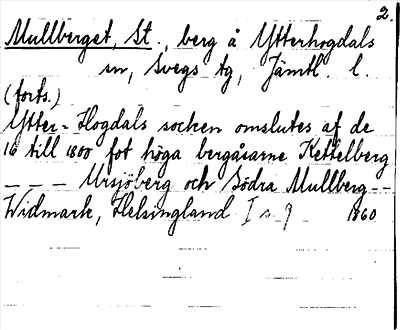 2.
Mullberget, St., berg å Ytterhogdals
sn, Svegs tg, Jämtl. l.
(forts.)
Ytter-Hogdals socken omslutes af de
16 till 1800 fot höga bergåsarne Kettelberg
--- Ursjöberg och Södra Mullberg--
Widmark, Helsingland I s. 9 1860